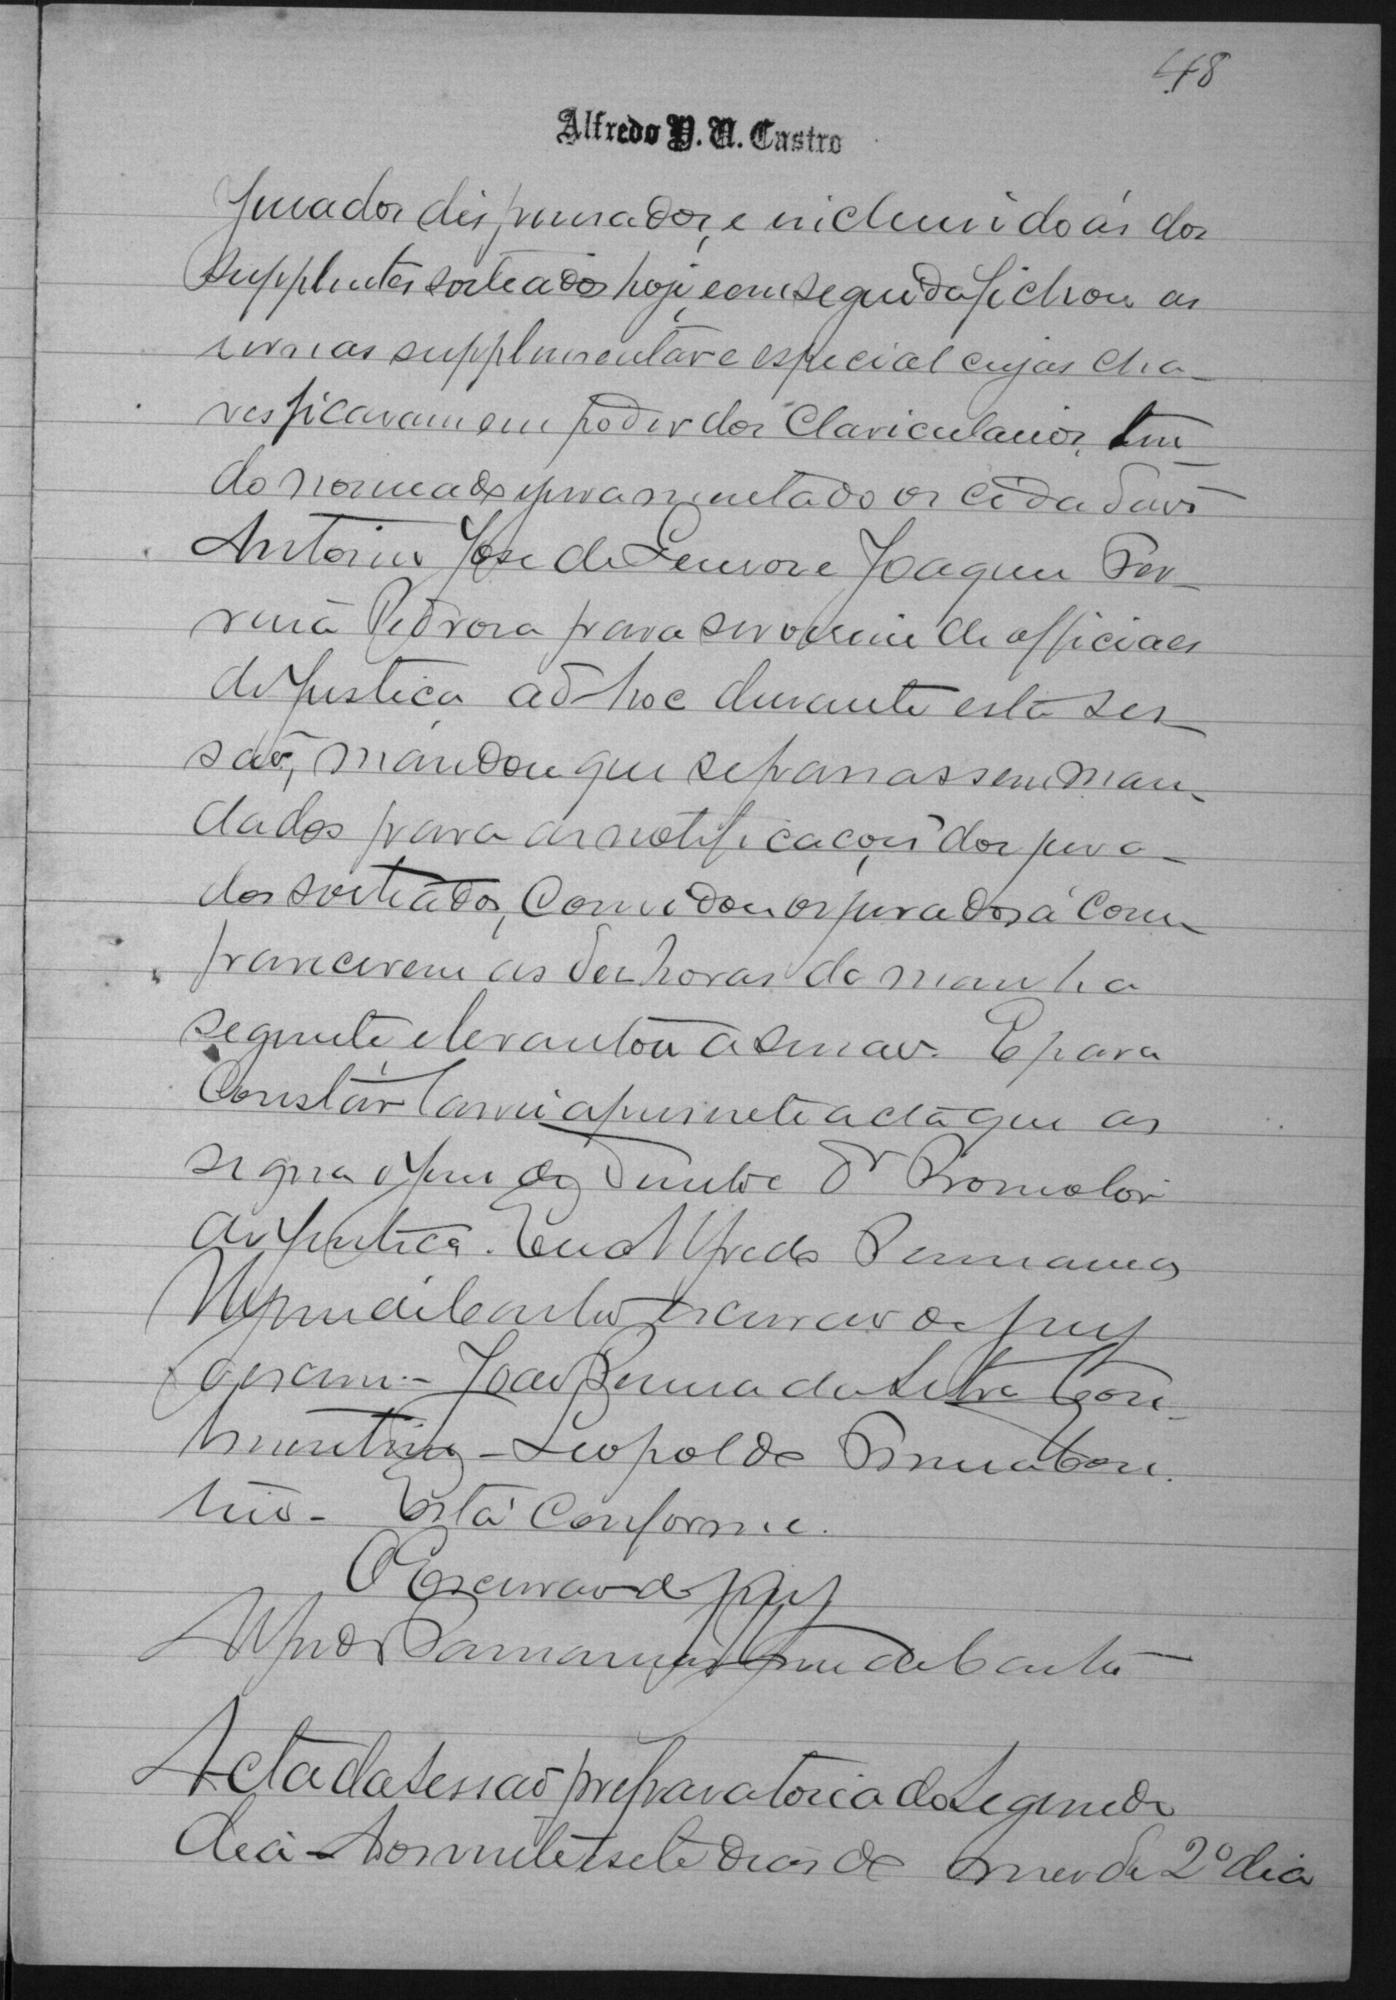 48
Alfredo P. N. Castro
Jurados dispensados, e incluindo ás dos
supplentes sorteados hoje, e em seguida fichou as
urnas supplementar e especial cujas cha-
ves ficaram em poder dos Claviculaios, ten-
do nomeado e juramentado os cidadãos
Antonio José de Lemos e Joaquim Fer-
reira Pedrosa para servirem de officiaes
de justiça ad-hoc durante esta ses-
são, mandou que se passassem man-
dados para as notificações dos jura-
dos sorteados, Convidou os jurados á com-
parecerem as des horas da manhã
seguinte e levantou a sessão. E para
Constar lavrei a presente acta que as-
signa o Juiz de Direito e Dr Promotor
de Justiça. Eu Alfredo Parmames
Nepomu de Castro escrivão do jury
o escrevi - João Pereira da Silva
- Leopoldo
Está Conforme.
O Escrivão do Jury
Alfredo Parmames de Castro
Acta da Sessão preparatoria do Segundo
dia - Aos vinte e sete dias do mes de 2º dia